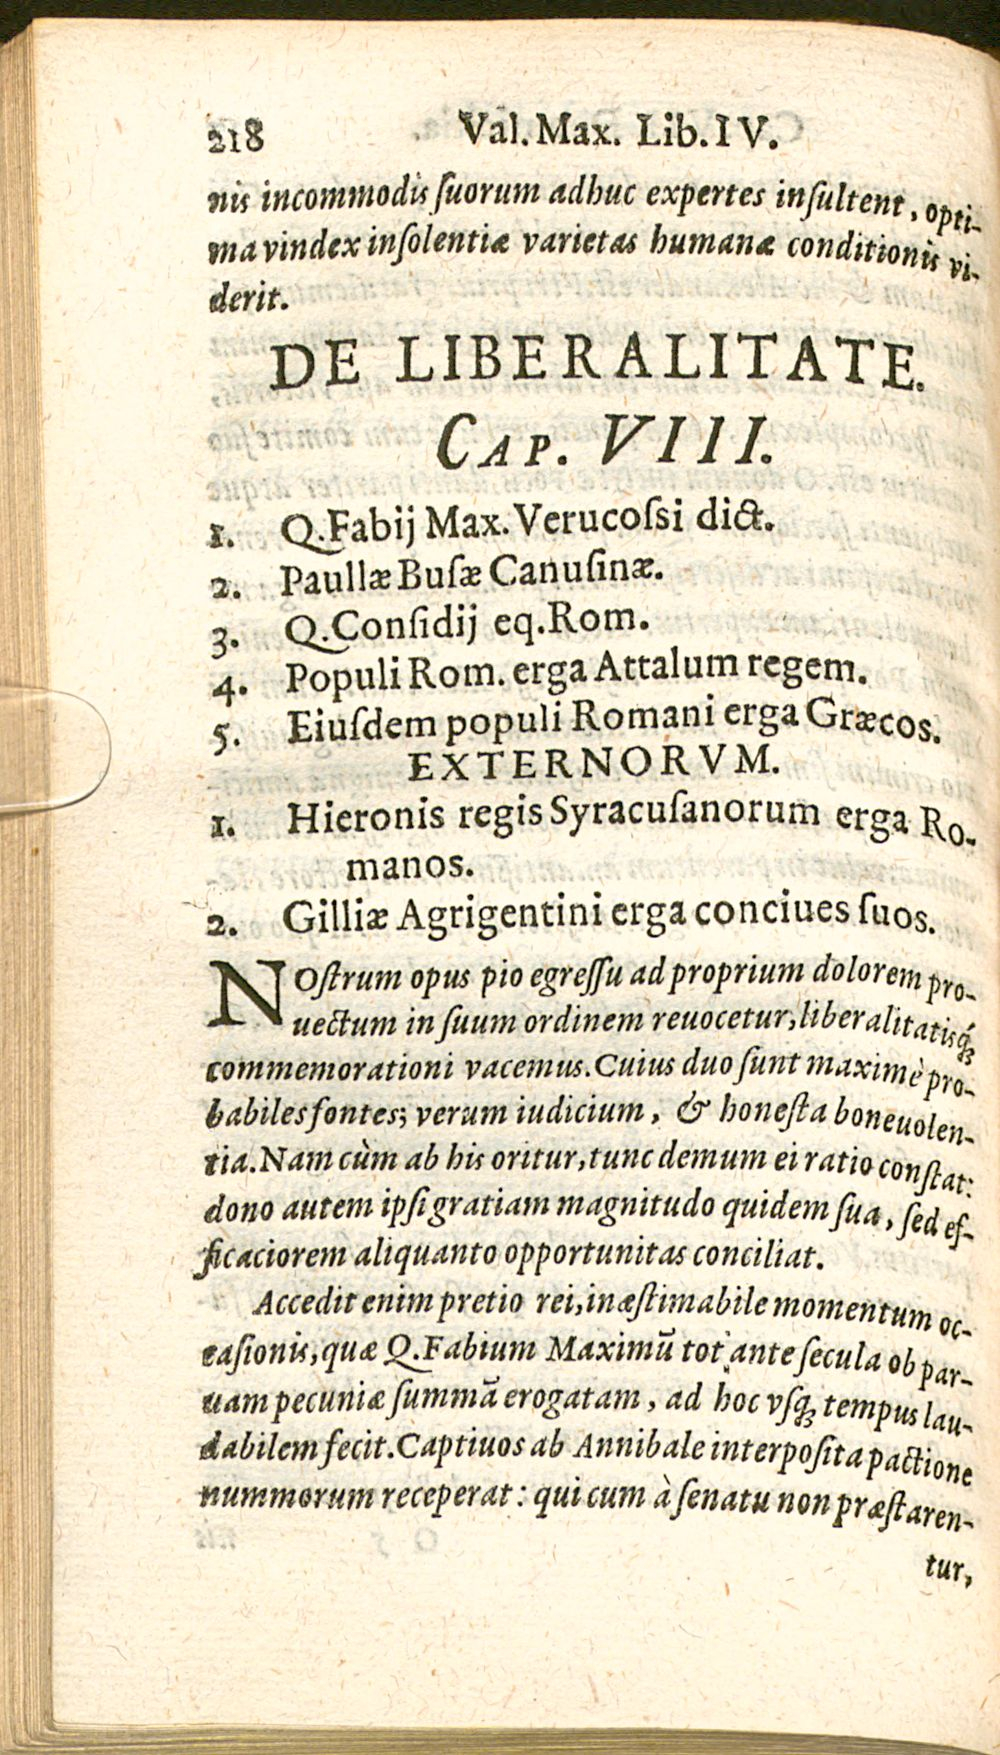 218 Val. Max. Lib. IV.
nis incommodis ſuorum adhuc expertes inſultent, opti-
ma vindex inſolentiæ varietas humanæ conditionis vi-
derit.
DE LIBERALITATE.
CAP. VIII.
1. Q. Fabij Max. Verucoſsi dict.
2. Paullæ Buſæ Canuſinæ.
3. Q. Conſidij eq. Rom.
4. Populi Rom. erga Attalum regem.
5. Eiuſdem populi Romani erga Græcos.
EXTERNORVM.
1. Hieronis regis Syracuſanorum erga Ro-
manos.
2. Gilliæ Agrigentini erga conciues ſuos.
NOſtrum opus pio egreſſu ad proprium dolorem pro-
uectum in ſuum ordinem reuocetur, liberalitatisq́;
commemorationi vacemus. Cuius duo ſunt maximè pro-
babiles fontes; verum iudicium, & honeſta boneuolen-
tia. Nam cùm ab his oritur, tunc demum ei ratio conſtat:
dono autem ipſi gratiam magnitudo quidem ſua, ſed ef-
ficaciorem aliquanto opportunitas conciliat.
Accedit enim pretio rei, inæſtimabile momentum oc-
caſionis, quæ Q. Fabium Maximũ tot ante ſecula ob par-
uam pecuniæ ſummã erogatam, ad hoc vſq; tempus lau-
dabilem fecit. Captiuos ab Annibale interpoſita pactione
nummorum receperat: qui cum à ſenatu non præſtaren-
tur,